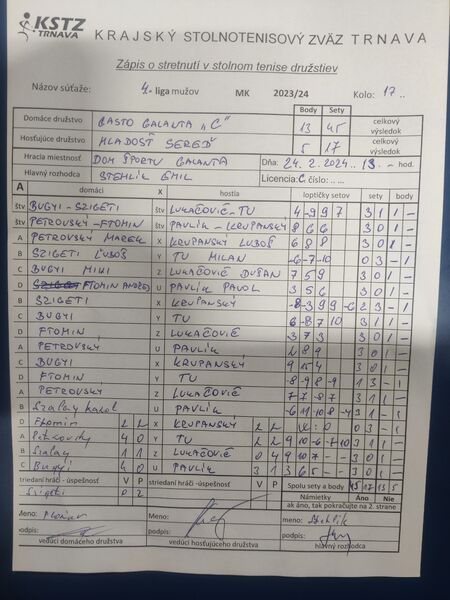 KSTZ
TRNAVA
KRAJSKÝ STOLNOTENISOVÝ ZVÄZ TRNAVA
Zápis o stretnutí v stolnom tenise družstiev
Názov súťaže: 4. liga mužov MK 2023/24 Kolo: 17 ..
Body Sety
Domáce družstvo CASTO GALANTA „C" 13 45 celkový výsledok
Hosťujúce družstvo MLADOSŤ SEREĎ 5 17 celkový výsledok
Hracia miestnosť DOM ŠPORTU GALANTA Dňa: 24. 2. 2024 .. 13.- hod.
Hlavný rozhodca STEHLÍK EMIL Licencia: C. číslo: .. ...
A domáci X hostia loptičky setov sety body
štv BUGYI - SZIGETI štv LUKAČOVIČ - TU 4 -9 9 7 3 1 1 -
štv PETROVSKÝ - FTOMIN štv PAVLÍK - KRUPANSKÝ 8 6 6 3 0 1 -
A PETROVSKÝ MAREK X KRUPANSKÝ ĽUBOŠ 6 8 8 3 0 1 -
B SZIGETI ĽUBOŠ Y TU MILAN -6 -7 -10 0 3 - 1
C BUGYI MIKI Z LUKAČOVIČ DUŠAN 7 5 9 3 0 1 -
D FTOMIN ANDREJ U PAVLÍK PAVOL 3 5 6 3 0 1 -
B SZIGETI X KRUPANSKÝ -8 -3 9 9 -6 2 3 - 1
C BUGYI Y TU 6 -8 7 10 3 1 1 -
D FTOMIN Z LUKAČOVIČ 3 0 1 -
A PETROVSKÝ U PAVLÍK 8 9 3 0 1 -
C BUGYI X KRUPANSKÝ 3 1 1 -
D FTOMIN Y TU -8 -9 8 -9 1 3 - 1
A PETROVSKÝ Z LUKAČOVIČ 7 -7 8 7 3 1 1 -
B Szalay Karol U PAVLÍK -6 11 -10 8 -4
D Ftomin 2 2 X KRUPANSKÝ 2 2 0 3 - 1
A Petrovský 4 0 Y TU 2 2 9 10 -6 -7 10 3
B Szalay 1 1 Z LUKAČOVIČ 0 4 3 0 1 -
C Bugyi 4 0 U PAVLÍK 3 1 3 6 5 3 0 1 -
striedaní hráči -úspešnosť V P striedaní hráči -úspešnosť V P Spolu sety a body 45 17 13 5
Szigeti 0 2 Námietky Áno Nie
ak áno, tak pokračujte na 2. strane
Meno: Meno: meno: Stehlík
podpis: podpis: podpis:
vedúci domáceho družstva vedúci hosťujúceho družstva hlavný rozhodca